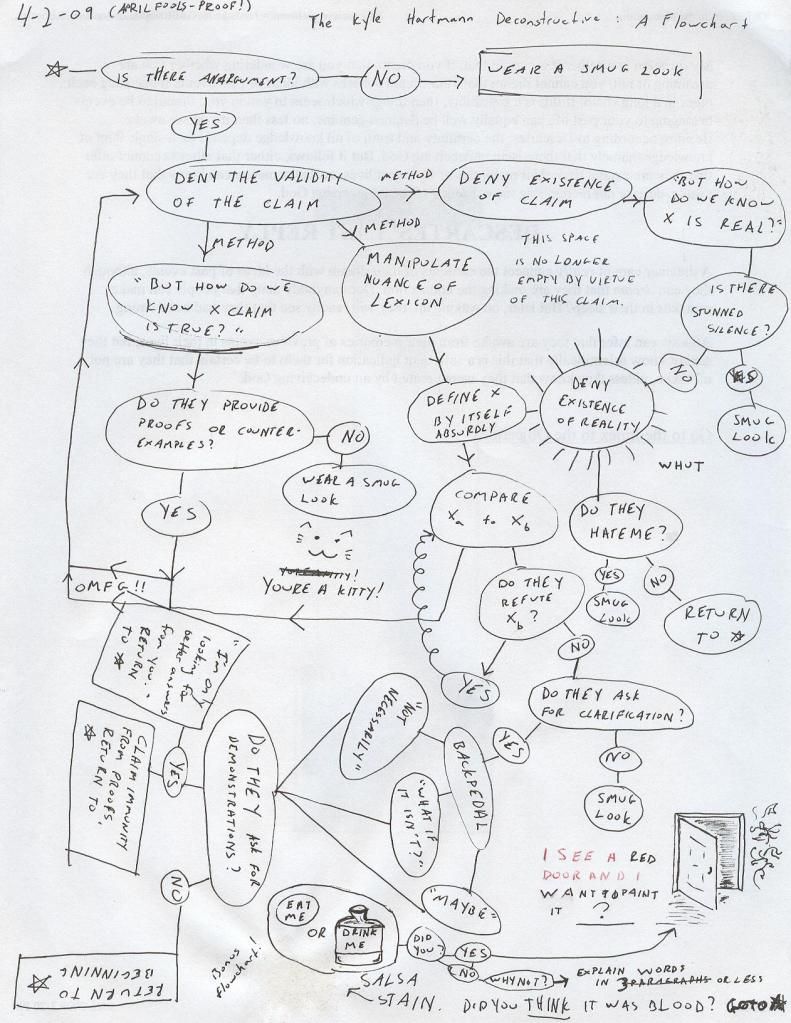 4-2-09 (APRIL FOOLS-PROOF!)
The Kyle Hartmann Deconstructive: A Flowchart
IS THERE AN ARGUMENT?
NO
WEAR A SMUG LOOK
YES
DENY THE VALIDITY
OF THE CLAIM
METHOD
DENY EXISTENCE
OF CLAIM
"BUT HOW
DO WE KNOW
X IS REAL?"
METHOD
METHOD
"BUT HOW DO WE
KNOW X CLAIM
IS TRUE?"
MANIPULATE
NUANCE OF
LEXICON
THIS SPACE
IS NO LONGER
EMPTY BY VIRTUE
OF THIS CLAIM.
IS THERE
STUNNED
SILENCE?
NO
YES
SMUG
LOOK
DENY
EXISTENCE
OF REALITY
WHUT
DEFINE X
BY ITSELF
ABSURDLY
DO THEY PROVIDE
PROOFS OR COUNTER-
EXAMPLES?
NO
WEAR A SMUG
LOOK
YES
COMPARE
Xa to Xb
DO THEY
HATE ME?
YES
SMUG
LOOK
NO
RETURN
TO ☆
YOU'RE A KITTY!
YOURE A KITTY!
OMFG!!
DO THEY
REFUTE
Xb?
NO
YES
DO THEY ASK
FOR CLARIFICATION?
YES
NO
SMUG
LOOK
"I'm only
looking for
better answers
from you."
RETURN
TO ☆
CLAIM IMMUNITY
FROM PROOFS
RETURN TO
☆
YES
DO THEY ASK FOR
DEMONSTRATIONS?
NO
RETURN TO
BEGINNING
☆
BACKPEDAL
"NOT
NECESSARILY"
"WHAT IF
IT ISN'T?"
"MAYBE"
I SEE A RED
DOOR AND I
WANT TO PAINT
IT ?
Bonus
flowchart!!
EAT
ME
OR
DRINK
ME
DID
YOU?
YES
NO
WHY NOT?
EXPLAIN WORDS
IN 3 PARAGRAPHS OR LESS
SALSA
STAIN.
DID YOU THINK IT WAS BLOOD? GOTO ☆